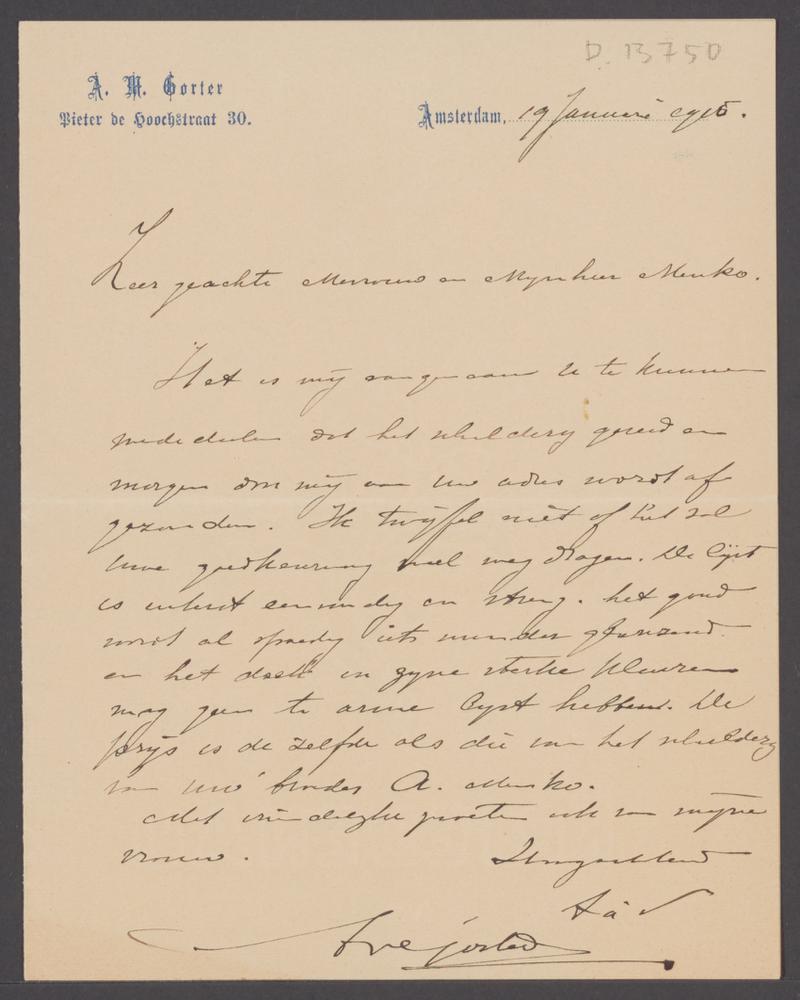 D. 13750
A. M. Gorter
Pieter de Hoochstraat 30.
Amsterdam, 19 Januari 1915.
Zeer geachte Mevrouw en Mynheer Menko.
Het is mij aangenaam U te kunnen
mededeelen dat het schildery gereed en
morgen door mij aan uw adres wordt af
gezonden. Ik twijfel niet of het zal
uwe goedkeuring wel weg dragen. De lijst
is uiterst eenvoudig en streng. het goud
wordt al spoedig iets minder glanzend.
en het doek in zyne sterke kleuren
mag geen te arme lyst hebben. De
prijs is de zelfde als die van het schildery
van uw broeder A. Menko.
Met vriendelyke groeten ook van mijne
vrouw. Hoogachtend